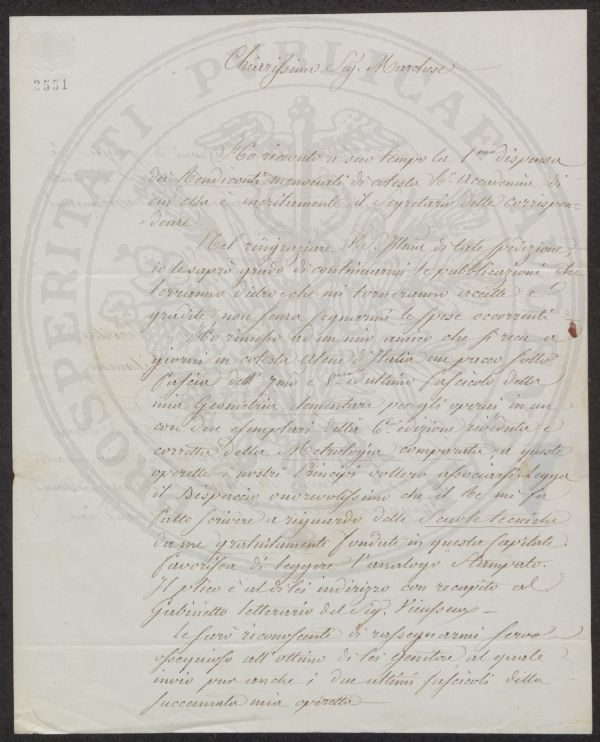 2551
PROSPERITATI PUBLICAE AU
Chiarissimo Sig. Marchese
Ho ricevuto a suo tempo la 1ma dispensa
dei Rendiconti mensuali di cotesta Rle Accademia di
cui ella è meritamente il Segretario delle corrispon-
=denze.
Nel ringraziare V. S. Illma di tale spedizione,
io le saprò grado di continuarmi le pubblicazioni che
terranno dietro che mi torneranno accette e
gradite non senza segnarmi le spese occorrenti.
Ho rimesso ad un mio amico che si reca a
giorni in cotesta Atene d'Italia un pacco sotto
fascia dell' 7mo e 8vo ed ultimo fascicolo della
mia Geometria elementare per gli operai in un
con due esemplari della 6ta edizione riveduta e
corretta della Metrologia comparata a queste
operette i nostri Principi vollero associarsi. Legga
il Dispaccio onorevolissimo che il Re mi fa
fatto scrivere a riguardo delle Scuole tecniche
da me gratuitamente fondate in questa capitale.
favorisca di leggere l'analogo Stampato.
Il plico è al di lei indirizzo con recapito al
Gabinetto letterario del Sig. Vieusseux
Le sarò riconoscente di rassegnarmi servo
ossequioso all' ottimo di lei genitore al quale
invio pur anche i due ultimi fascicoli della
succennata mia operetta